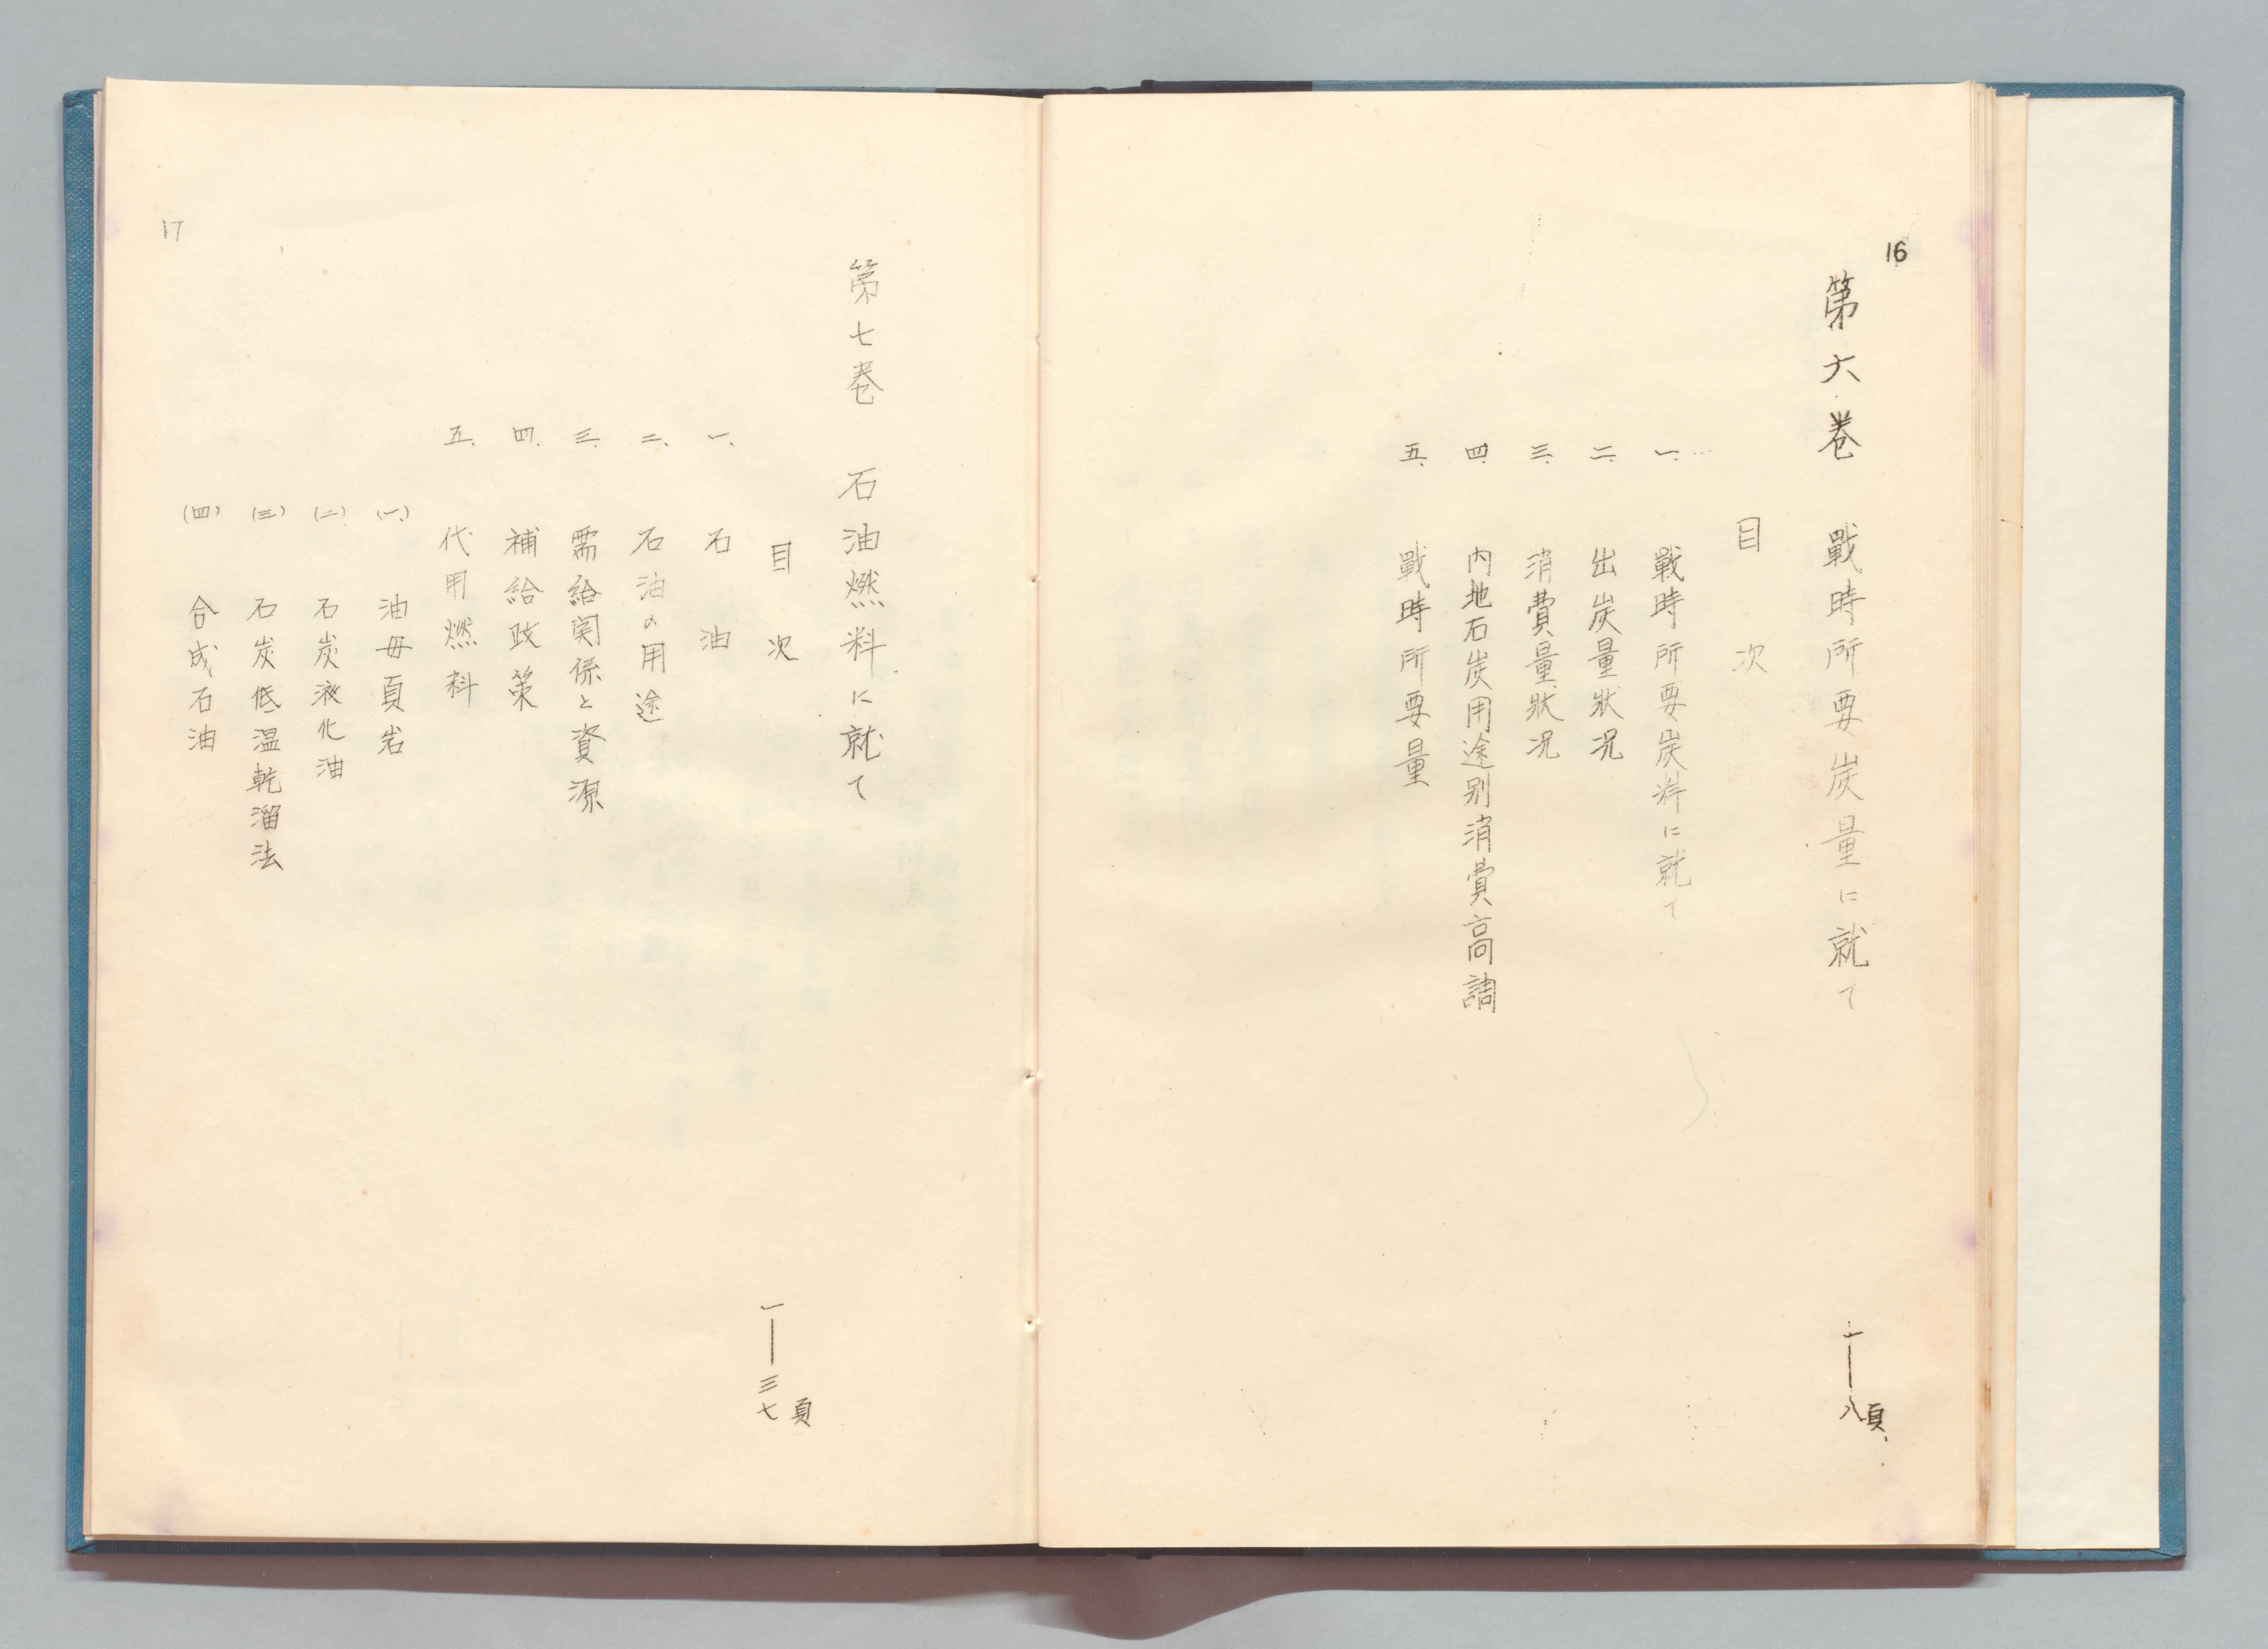 16
第六卷 戰時所要炭量に就て
一―八頁
目次
一、戰時所要炭料に就て
二、出炭量狀况
三、消費量狀况
四、内地石炭用途别消費高調
五、戰時所要量
第七卷 石油燃料に就て
目次
一―三七頁
一、石油
二、石油の用途
三、需給関係と資源
四、補給政策
五、代用燃料
(一) 油母頁岩
(二) 石炭液化油
(三) 石炭低温乾溜法
(四) 合成石油
17